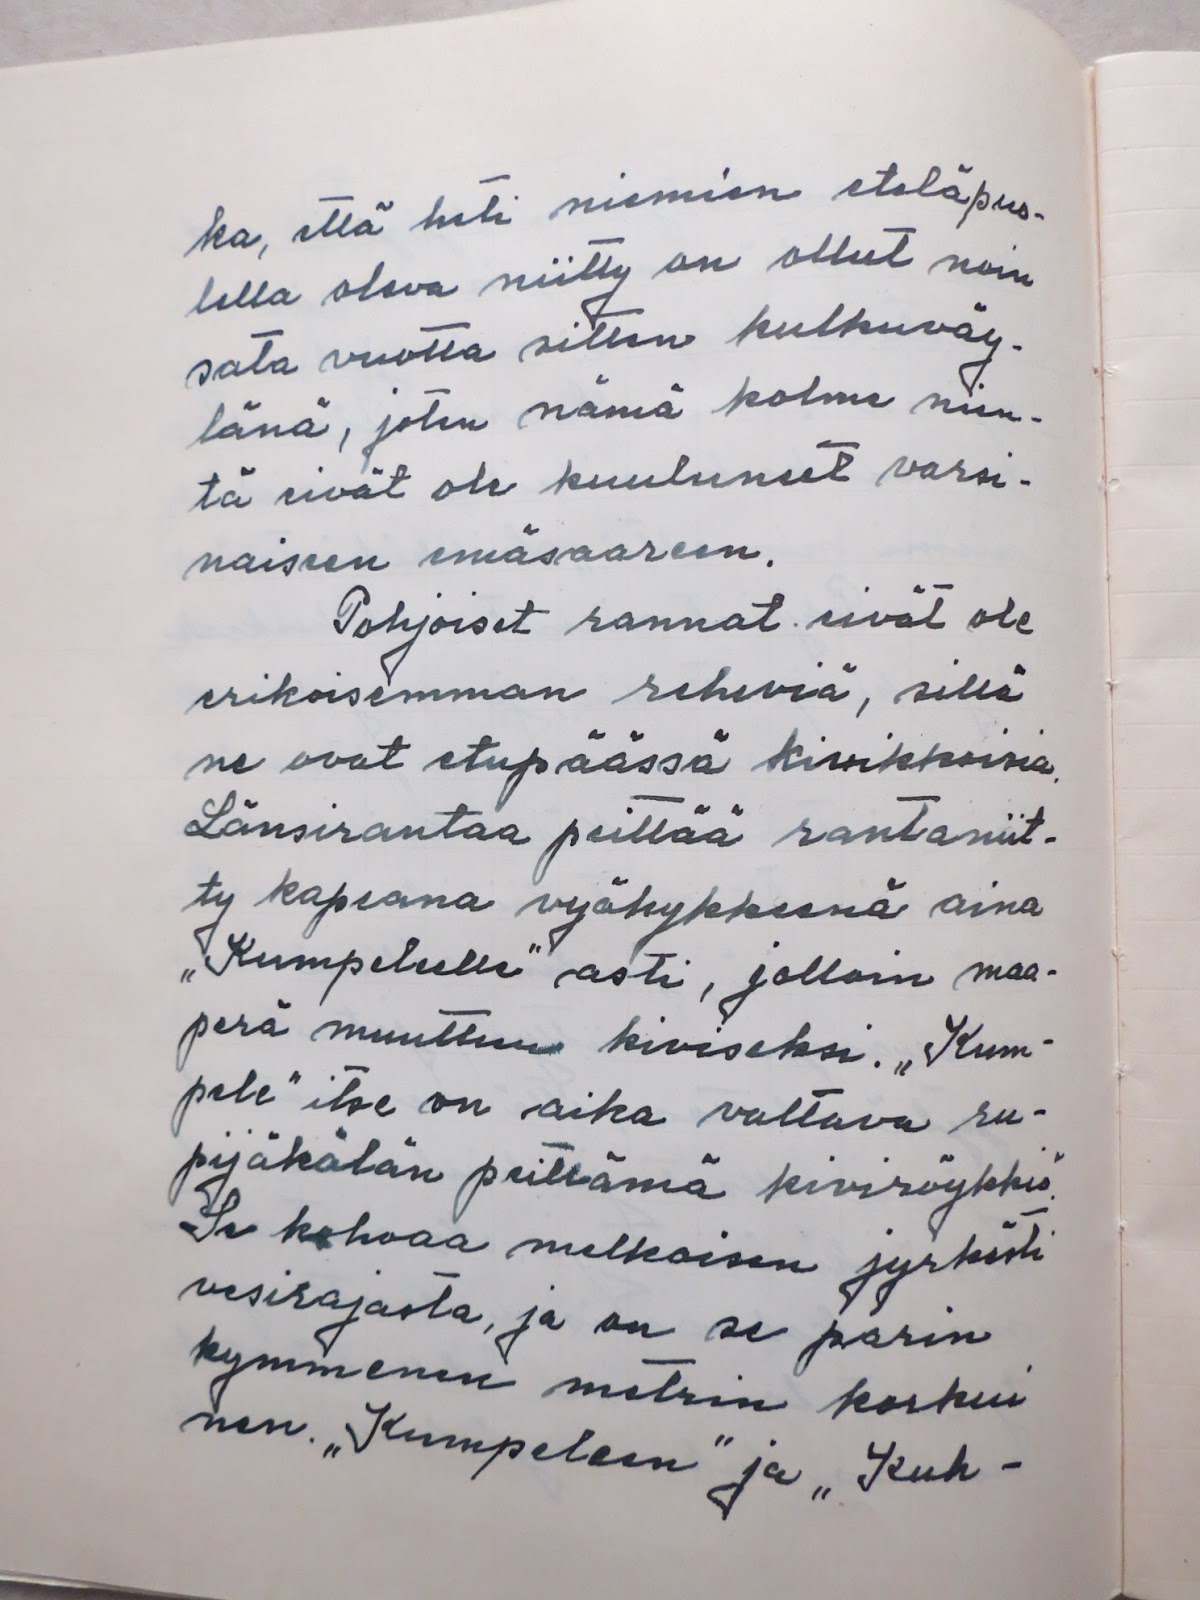 ka, että heti niemien eteläpuo-
lella oleva niitty on ollut noin
sata vuotta sitten kulkuväy-
länä, joten nämä kolme nien-
tä eivät ole kuuluneet varsi-
naiseen emäsaareen.
Pohjoiset rannat eivät ole
erikoisemman reheviä, sillä
ne ovat etupäässä kivikkoisia.
Länsirantaa peittää rantaniit-
ty kapeana vyöhykkeenä aina
„Kumpeleelle" asti, jolloin maa-
perä muuttuu kiviseksi. „Kum-
pele" itse on aika valtava ru-
pijäkälän peittämä kiviröykkiö.
Se kohoaa melkoisen jyrkästi
vesirajasta, ja on se parin
kymmenen metrin korkui
nen. „Kumpeleen" ja „Kuh-